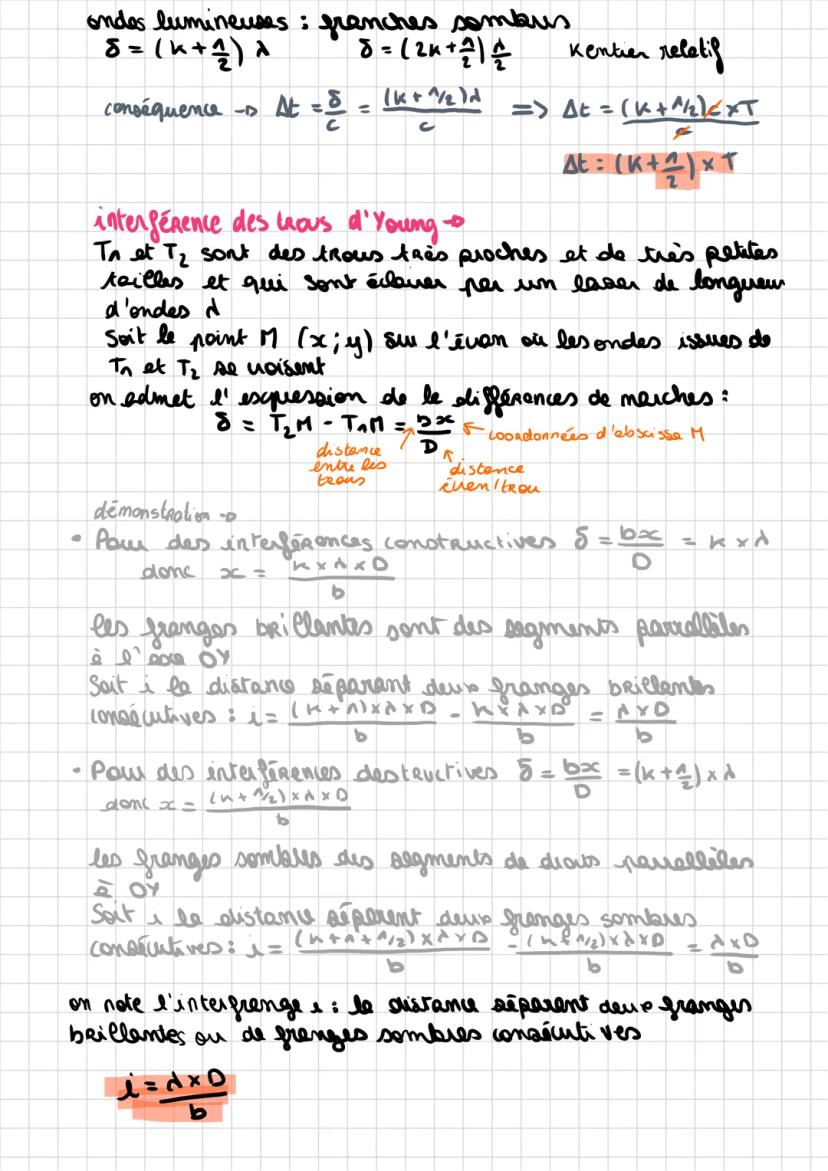 ondes lumineuses : franches sombres
δ = (k + 1/2) λ δ = (2k + 1/2) λ/2 K entier relatif
conséquence → Δt = δ/c = (k + 1/2)λ/c => Δt = (k + 1/2)c×T/c
Δt = (k + 1/2) × T
interférence des trous d'Young →
T1 et T2 sont des trous très proches et de très petites
tailles et qui sont éclairer par un laser de longueur
d'ondes λ
Soit le point M (x ; y) sur l'écran où les ondes issues de
T1 et T2 se croisent
on admet l'expression de la différences de marches :
δ = T2M - T1M = bx/D ← coordonnées d'abscisse M
distance
entre les
trous
distance
écran/trou
démonstration →
• Pour des interférences constructives δ = bx/D = k × λ
donc x = k × λ × D/b
les franges brillantes sont des segments parrallèles
à l'axe OY
Soit i la distance séparant deux franges brillantes
consécutives : i = (k + 1)×λ×D/b - k×λ×D/b = λ×D/b
• Pour des interférences destructives δ = bx/D = (k + 1/2) × λ
donc x = (k + 1/2)×λ×D/b
les franges sombres des segments de droits parrallèles
à OY
Soit i la distance séparent deux franges sombres
consécutives : i = (k + 1 + 1/2)×λ×D/b - (k + 1/2)×λ×D/b = λ×D/b
on note l'interfrange i : la distance séparent deux franges
brillantes ou de franges sombres consécutives
i = λ×D/b